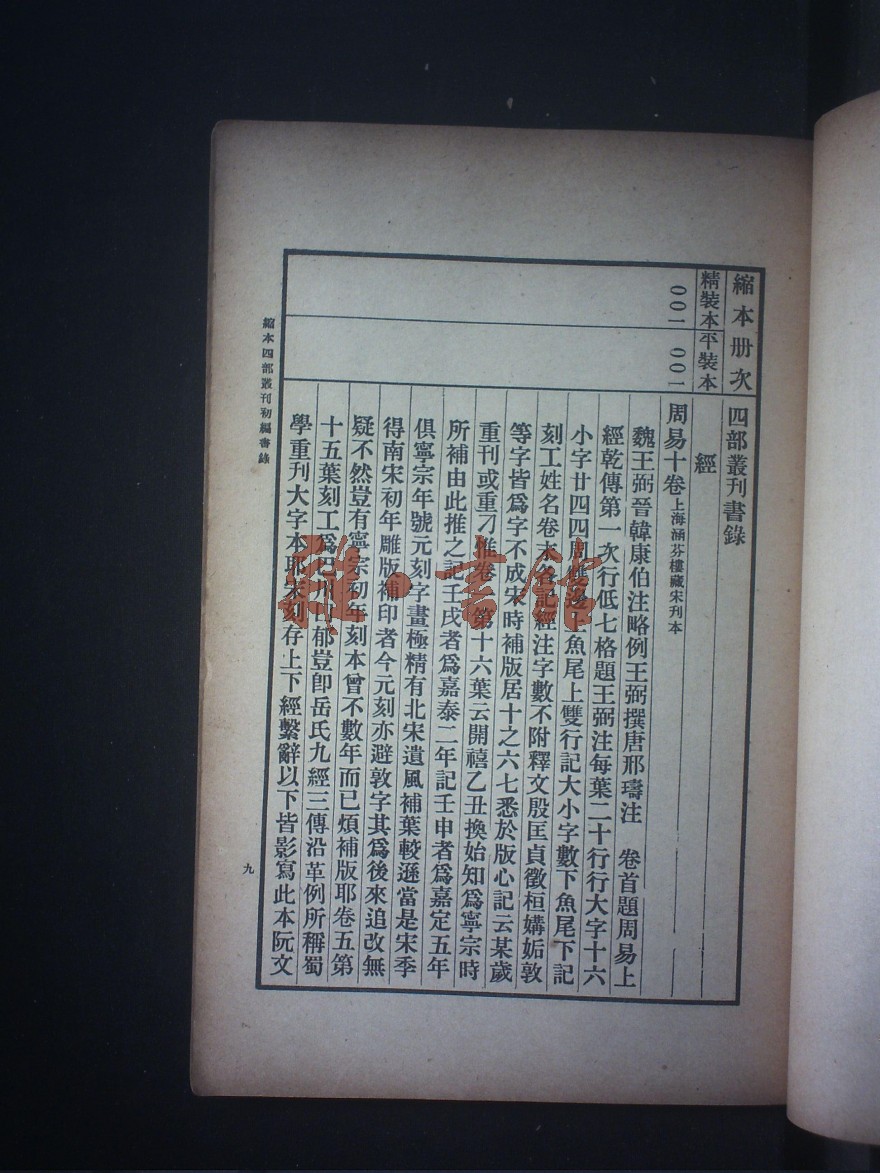 縮本册次
精裝本
平裝本
001
001
四部叢刊書錄
經
周易十卷上海涵芬樓藏宋刊本
魏王弼晉韓康伯注略例王弼撰唐邢璹注 卷首題周易上
經乾傳第一次行低七格題王弼注每葉二十行行大字十六
小字廿四四周雙邊上魚尾上雙行記大小字數下魚尾下記
刻工姓名卷末各記經注字數不附釋文殷匡貞徵桓媾姤敦
等字皆爲字不成宋時補版居十之六七悉於版心記云某歲
重刊或重刁惟卷 第十六葉云開禧乙丑換始知爲寧宗時
所補由此推之記壬戌者爲嘉泰二年記壬申者爲嘉定五年
俱寧宗年號元刻字畫極精有北宋遺風補葉較遜當是宋季
得南宋初年雕版補印者今元刻亦避敦字其爲後來追改無
疑不然豈有寧宗初年刻本曾不數年而已煩補版耶卷五第
十五葉刻工爲巴川 郁豈卽岳氏九經三傳沿革例所稱蜀
學重刊大字本耶宋刻存上下經繫辭以下皆影寫此本阮文
縮本四部叢刊初編書錄
九
雅·書館